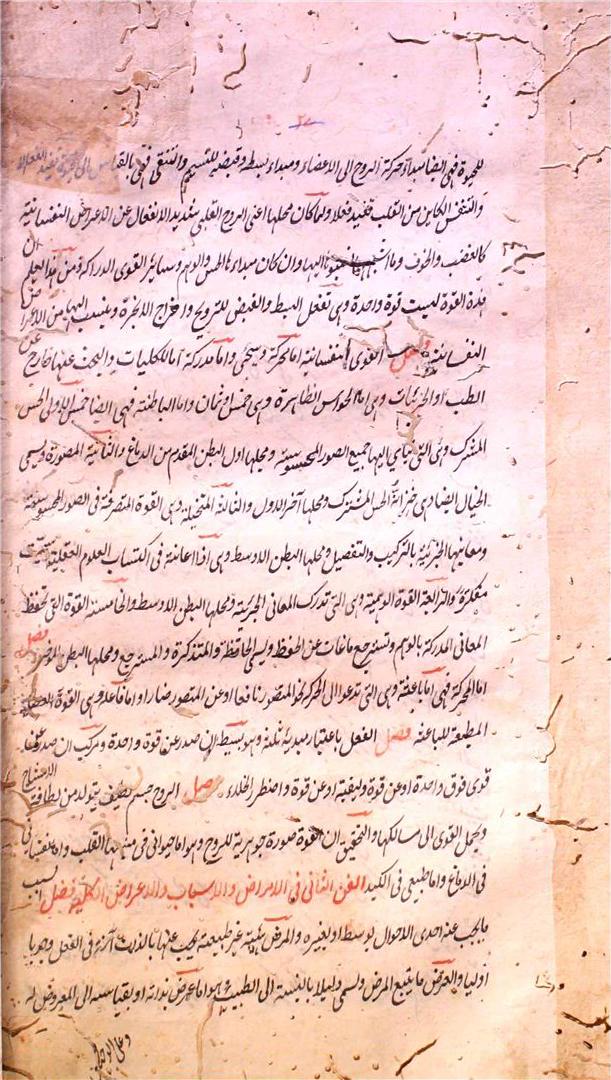 للحيوة فهى ايضا مبداء حركة الروح الى الاعضاء ومبداء بسطه وقبضه للتنسيم والتنقى فهى بالقياس الى
والتنفس الكاين من القلب تفيد فعلا ولما كان محلها اعنى الروح القلبى شديد الانفعال عن الاعراض النفسانية
كالغضب والخوف وما اليها وان كان مبداءها الحس والوهم وسائر القوى الدراكة ومن
هذه القوة ليست قوة واحدة وهى تفعل البسط والقبض للترويح واخراج الابخرة وينسب اليها من
النفسانية فصل القوى النفسانية اما محركة ويسمى واما مدركة اما للكليات والبحث عنها خارج عن
الطب او الجزئيات وهى اما الحواس الظاهرة وهى خمس او ثمان واما الباطنة فهى ايضا خمس الاولى الحس
المشترك وهى التى يتأدى اليها جميع الصور المحسوسة ومحلها اول البطن المقدم من الدماغ والثانية المصورة ويسمى
الخيال ايضا وهى خزانة الحس المشترك ومحلها آخر الاول والثالثة المتخيلة وهى القوة المتصرفة فى الصور المحسوسة
ومعانيها الجزئية بالتركيب والتفصيل ومحلها البطن الاوسط وهى اذا اعانته فى اكتساب العلوم العقلية سميت
مفكرة والرابعة القوة الوهمية وهى التى تدرك المعانى الجزئية ومحلها البطن الاوسط والخامسة القوة التى تحفظ
المعانى المدركة بالوهم وتسترجع ما غاب عن الحفظ ويسمى الحافظة والمتذكرة والمسترجع ومحلها البطن الموخر فصل
اما المحركة فهى اما باعثة وهى التى تدعو الى الحركة نحو المتصور نافعا او عن المتصور ضارا واما فاعلة وهى القوة
المطيعة للباعثة فصل الفعل باعتبار مبدئه ثلثة وهو بسيط ان صدر عن قوة واحدة ومركب ان صدر عن
قوى فوق واحدة او عن قوة وكيفية او عن قوة واضطر الخلاء فصل الروح جسم لطيف يتولد من لطافة
ويحمل القوى الى مسالكها والتحقيق ان القوة صورة جوهرية للروح وهو اما حيوانى فى القلب واما نفسانى
فى الدماغ واما طبيعى فى الكبد الفن الثانى فى الامراض والاسباب والاعراض الكلية فصل السبب
ما يجب عنه احدى الاحوال بوسط او بغيره والمرض هيئة غير طبيعية يجب عنها بالذات آفة فى الفعل وجوبا
اوليا والعرض ما يتبع المرض ويسمى دليلا بالنسبة الى الطبيب وهو اما عرض بذاته او بقياسه الى المعروض له